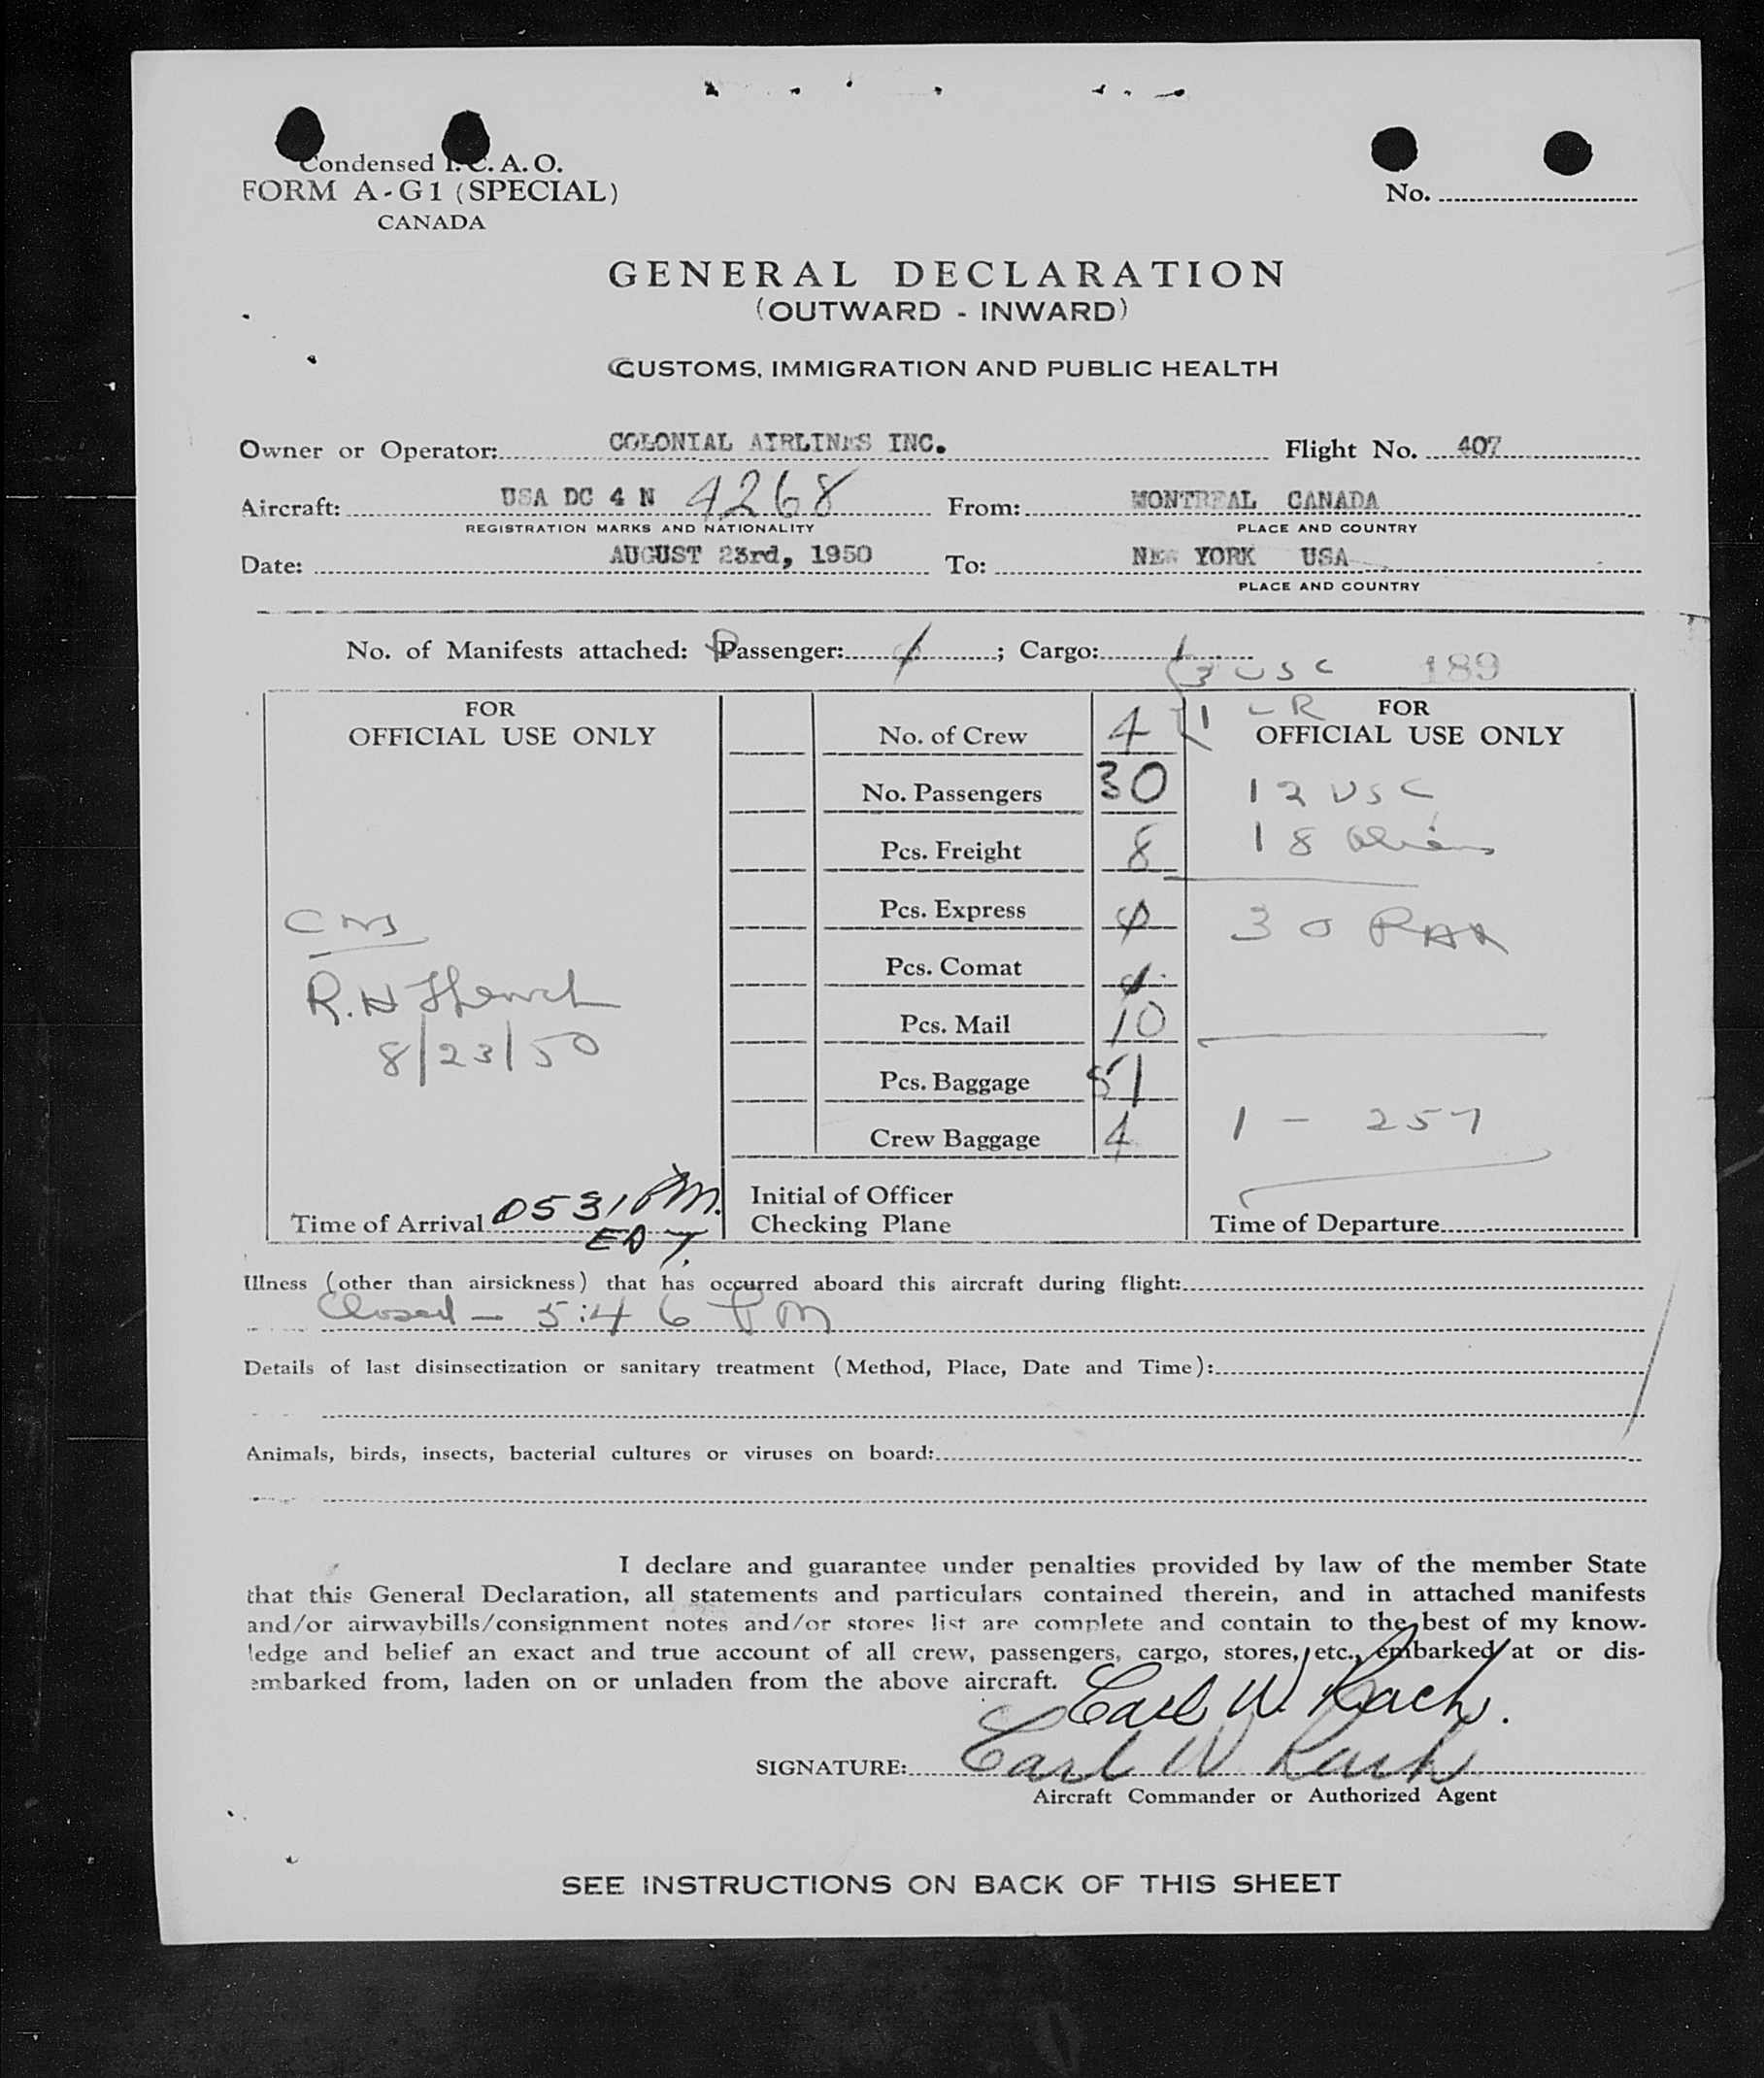 Condensed I. C. A. O.
FORM A-G1 (SPECIAL)
CANADA
No.
GENERAL DECLARATION
(OUTWARD - INWARD)
CUSTOMS, IMMIGRATION AND PUBLIC HEALTH
Owner or Operator: COLONIAL AIRLINES INC. Flight No. 407
Aircraft: USA DC 4 N 4268 From: MONTREAL CANADA
REGISTRATION MARKS AND NATIONALITY PLACE AND COUNTRY
Date: AUGUST 23rd, 1950 To: NEW YORK USA
PLACE AND COUNTRY
No. of Manifests attached: Passenger: 1; Cargo: 1
3 USC 189
1 LR
FOR
OFFICIAL USE ONLY
R.H.
8/23/50
Time of Arrival 0531 PM.
EDT
No. of Crew 4
No. Passengers 30
Pcs. Freight 8
Pcs. Express
Pcs. Comat
Pcs. Mail 10
Pcs. Baggage 51
Crew Baggage 4
Initial of Officer
Checking Plane
FOR
OFFICIAL USE ONLY
12 USC
18 Aliens
30 PAX
1 - 257
Time of Departure
Illness (other than airsickness) that has occurred aboard this aircraft during flight:
Closed - 5:46 PM
Details of last disinsectization or sanitary treatment (Method, Place, Date and Time):
Animals, birds, insects, bacterial cultures or viruses on board:
I declare and guarantee under penalties provided by law of the member State
that this General Declaration, all statements and particulars contained therein, and in attached manifests
and/or airwaybills/consignment notes and/or stores list are complete and contain to the best of my know-
ledge and belief an exact and true account of all crew, passengers, cargo, stores, etc., embarked at or dis-
embarked from, laden on or unladen from the above aircraft.
Earl W. Rach.
SIGNATURE: Earl W Rach
Aircraft Commander or Authorized Agent
SEE INSTRUCTIONS ON BACK OF THIS SHEET